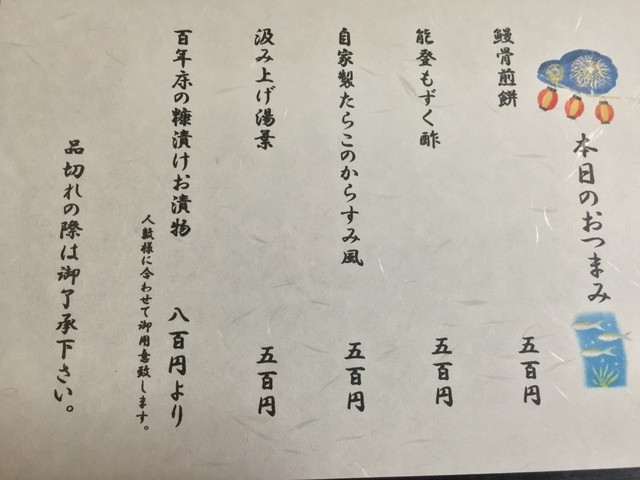 本日のおつまみ
鰻骨煎餅　五百円
能登もずく酢　五百円
自家製たらこのからすみ風　五百円
汲み上げ湯葉　五百円
百年床の糠漬けお漬物　八百円より
人数様に合わせて御用意致します。
品切れの際は御了承下さい。